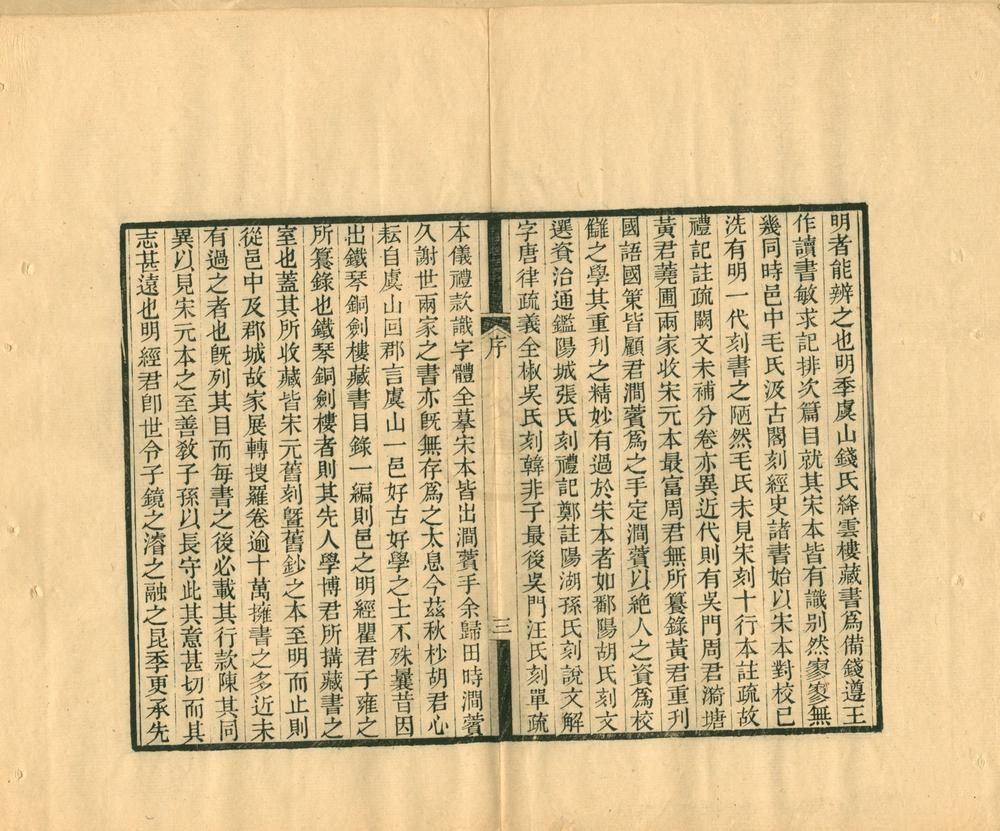 明者能辨之也明季虞山錢氏絳雲樓藏書爲備錢遵王
作讀書敏求記排次篇目就其宋本皆有識别然寥寥無
幾同時邑中毛氏汲古閣刻經史諸書始以宋本對校已
洗有明一代刻書之陋然毛氏未見宋刻十行本註疏故
禮記註疏闕文未補分卷亦異近代則有吳門周君漪塘
黃君蕘圃兩家收宋元本最富周君無所纂錄黃君重刋
國語國策皆顧君澗薲爲之手定澗薲以絶人之資爲校
讎之學其重刋之精妙有過於宋本者如鄱陽胡氏刻文
選資治通鑑陽城張氏刻禮記鄭註陽湖孫氏刻說文解
字唐律疏義全椒吳氏刻韓非子最後吳門汪氏刻單疏
序
三
本儀禮款識字體全摹宋本皆出澗薲手余歸田時澗薲
久謝世兩家之書亦旣無存爲之太息今茲秋杪胡君心
耘自虞山回郡言虞山一邑好古好學之士不殊曩昔因
出鐵琴銅劍樓藏書目錄一編則邑之明經瞿君子雍之
所纂錄也鐵琴銅劍樓者則其先人學博君所搆藏書之
室也蓋其所收藏皆宋元舊刻曁舊鈔之本至明而止則
從邑中及郡城故家展轉搜羅卷逾十萬擁書之多近未
有過之者也旣列其目而每書之後必載其行款陳其同
異以見宋元本之至善敎子孫以長守此其意甚切而其
志甚遠也明經君卽世令子鏡之濬之融之昆季更承先